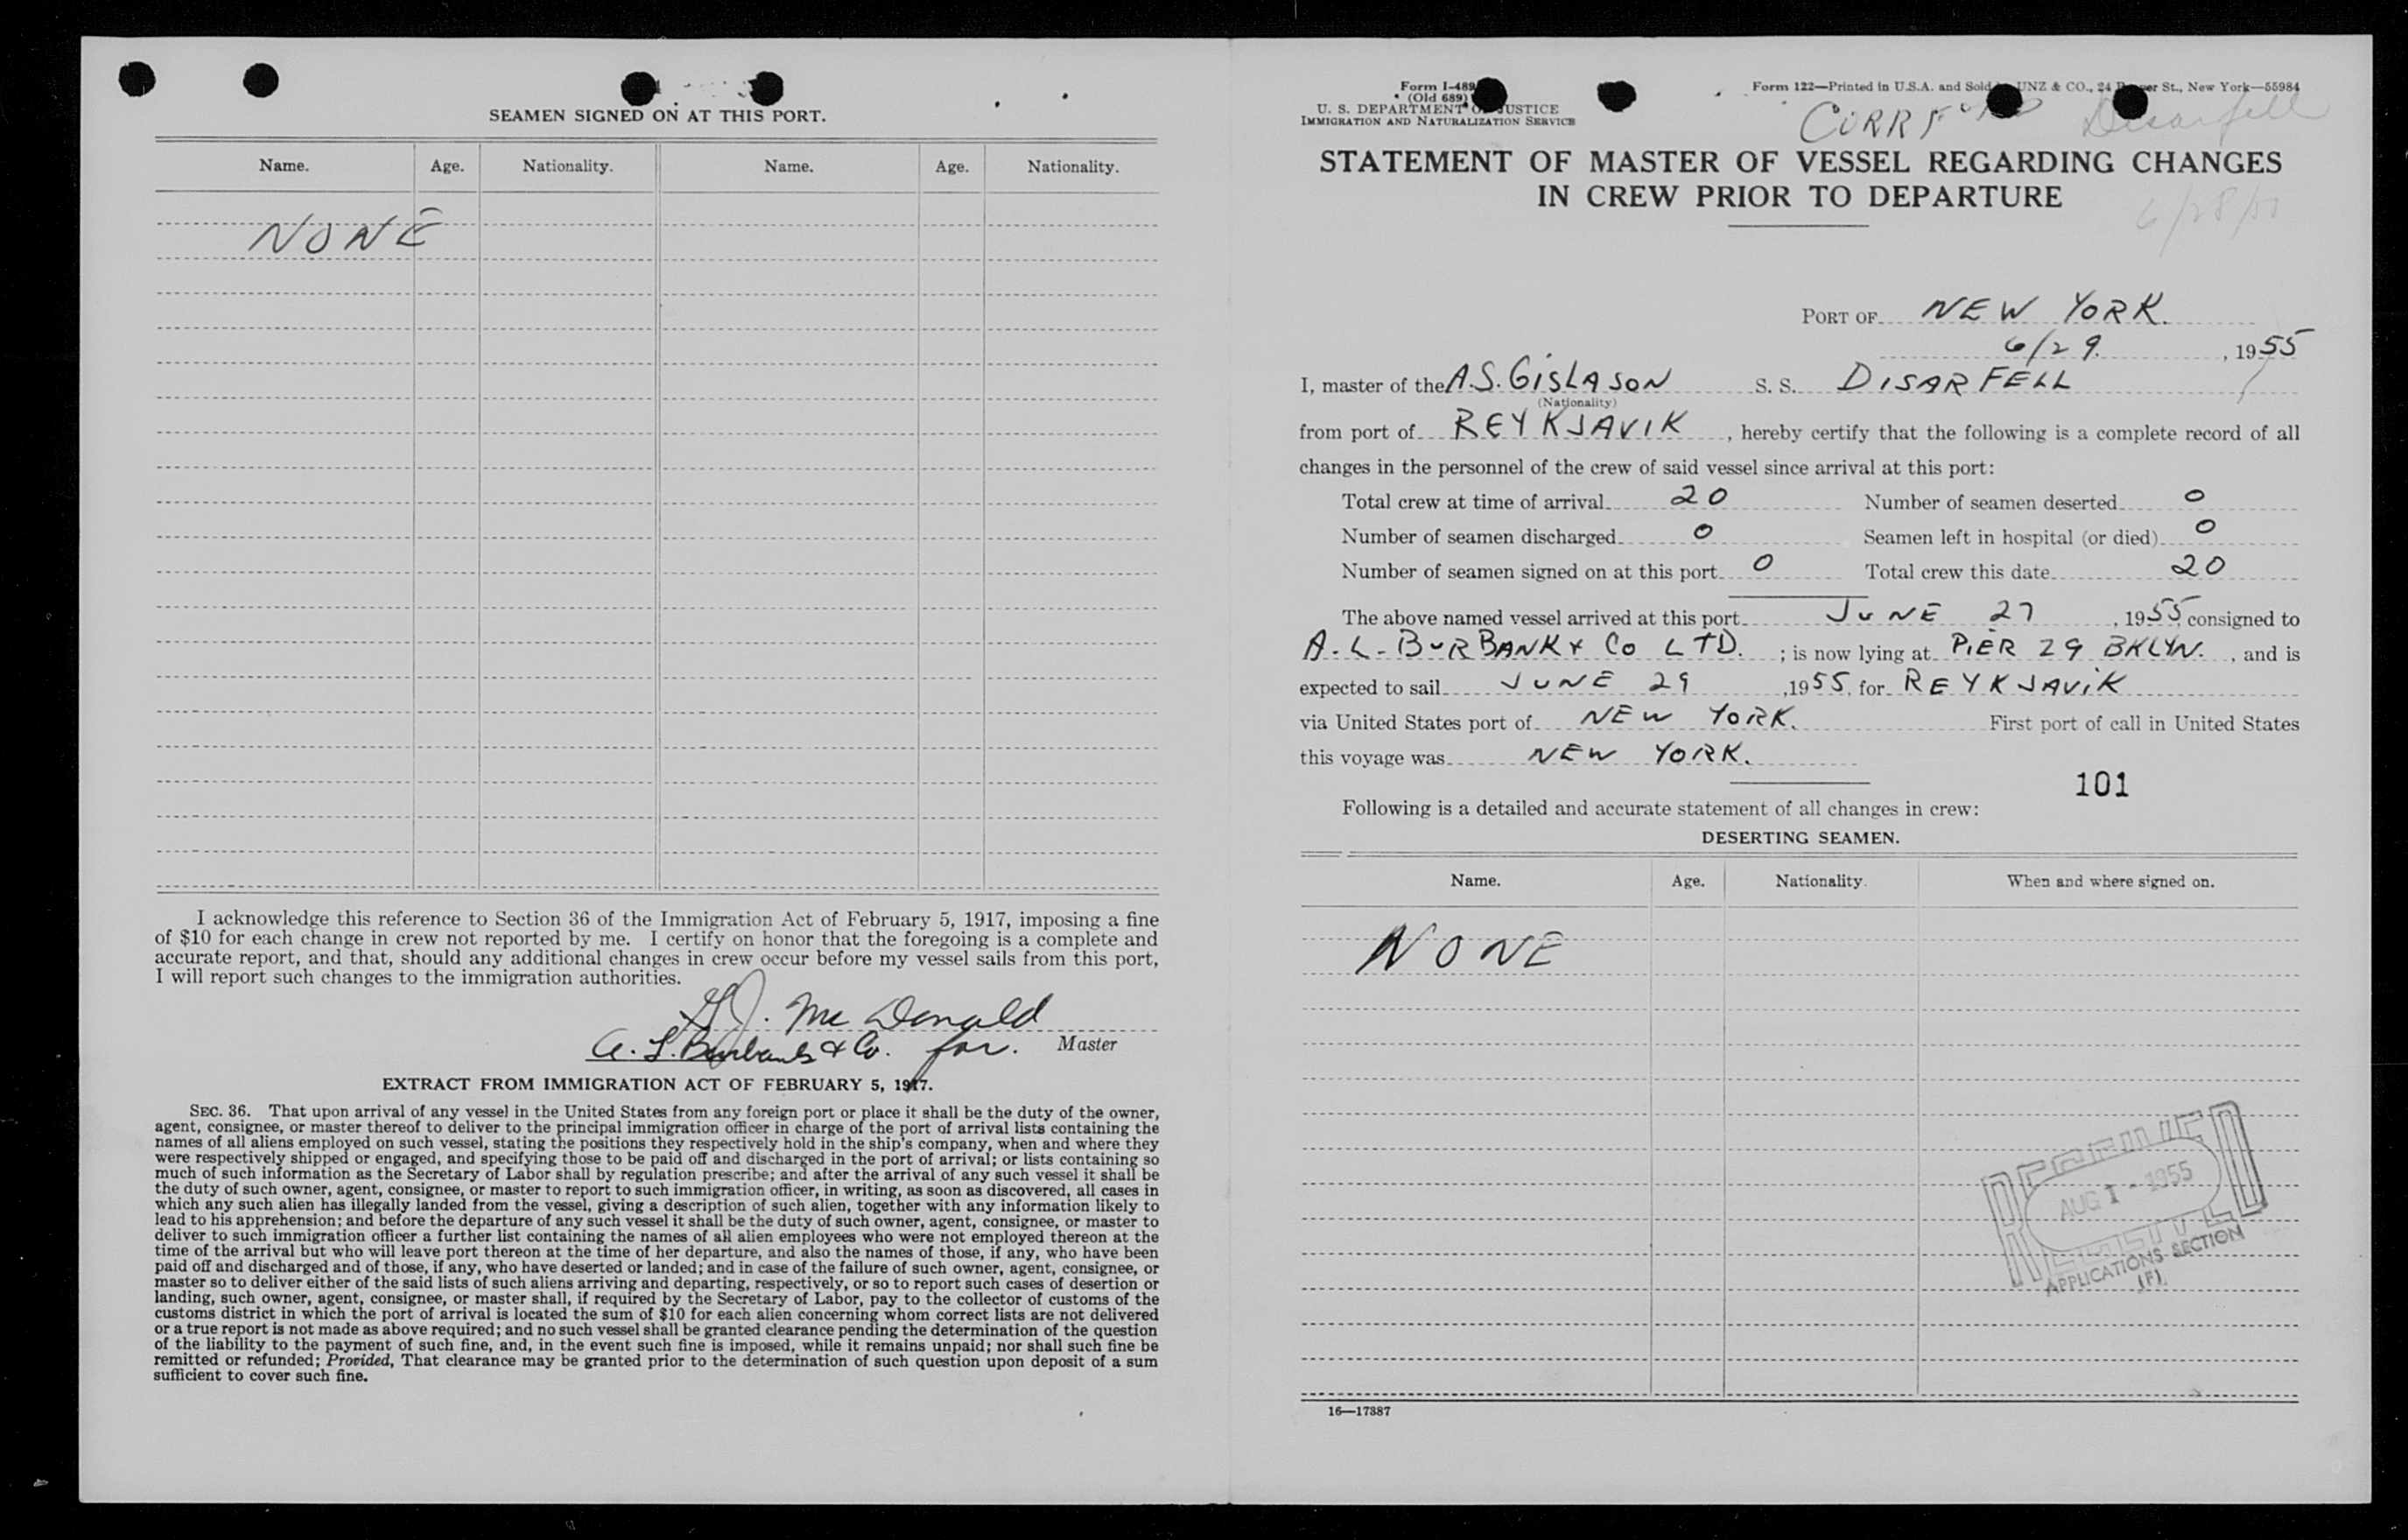 SEAMEN SIGNED ON AT THIS PORT.
Name. Age. Nationality. Name. Age. Nationality.
NONE
I acknowledge this reference to Section 36 of the Immigration Act of February 5, 1917, imposing a fine
of $10 for each change in crew not reported by me. I certify on honor that the foregoing is a complete and
accurate report, and that, should any additional changes in crew occur before my vessel sails from this port,
I will report such changes to the immigration authorities.
J. McDonald
A. L. Burbank & Co. for. Master
EXTRACT FROM IMMIGRATION ACT OF FEBRUARY 5, 1917.
SEC. 36. That upon arrival of any vessel in the United States from any foreign port or place it shall be the duty of the owner,
agent, consignee, or master thereof to deliver to the principal immigration officer in charge of the port of arrival lists containing the
names of all aliens employed on such vessel, stating the positions they respectively hold in the ship's company, when and where they
were respectively shipped or engaged, and specifying those to be paid off and discharged in the port of arrival; or lists containing so
much of such information as the Secretary of Labor shall by regulation prescribe; and after the arrival of any such vessel it shall be
the duty of such owner, agent, consignee, or master to report to such immigration officer, in writing, as soon as discovered, all cases in
which any such alien has illegally landed from the vessel, giving a description of such alien, together with any information likely to
lead to his apprehension; and before the departure of any such vessel it shall be the duty of such owner, agent, consignee, or master to
deliver to such immigration officer a further list containing the names of all alien employees who were not employed thereon at the
time of the arrival but who will leave port thereon at the time of her departure, and also the names of those, if any, who have been
paid off and discharged and of those, if any, who have deserted or landed; and in case of the failure of such owner, agent, consignee, or
master so to deliver either of the said lists of such aliens arriving and departing, respectively, or so to report such cases of desertion or
landing, such owner, agent, consignee, or master shall, if required by the Secretary of Labor, pay to the collector of customs of the
customs district in which the port of arrival is located the sum of $10 for each alien concerning whom correct lists are not delivered
or a true report is not made as above required; and no such vessel shall be granted clearance pending the determination of the question
of the liability to the payment of such fine, and, in the event such fine is imposed, while it remains unpaid; nor shall such fine be
remitted or refunded; Provided, That clearance may be granted prior to the determination of such question upon deposit of a sum
sufficient to cover such fine.
Form I-489
(Old 689)
U. S. DEPARTMENT OF JUSTICE
IMMIGRATION AND NATURALIZATION SERVICE
Form 122—Printed in U.S.A. and Sold UNZ & CO., 24 St., New York—55984
Disarfell
STATEMENT OF MASTER OF VESSEL REGARDING CHANGES
IN CREW PRIOR TO DEPARTURE
PORT OF NEW YORK.
6/29. , 1955
I, master of the A.S. GISLASON S. S. DISARFELL
(Nationality)
from port of REYKJAVIK , hereby certify that the following is a complete record of all
changes in the personnel of the crew of said vessel since arrival at this port:
Total crew at time of arrival 20 Number of seamen deserted 0
Number of seamen discharged 0 Seamen left in hospital (or died) 0
Number of seamen signed on at this port 0 Total crew this date 20
The above named vessel arrived at this port JUNE 27 , 1955, consigned to
A. L. BURBANK & CO LTD. ; is now lying at PIER 29 BKLYN. , and is
expected to sail JUNE 29 , 1955, for REYKJAVIK
via United States port of NEW YORK. First port of call in United States
this voyage was NEW YORK.
101
Following is a detailed and accurate statement of all changes in crew:
DESERTING SEAMEN.
Name. Age. Nationality. When and where signed on.
NONE
AUG 1 - 1955
APPLICATIONS SECTION
(F)
16—17387